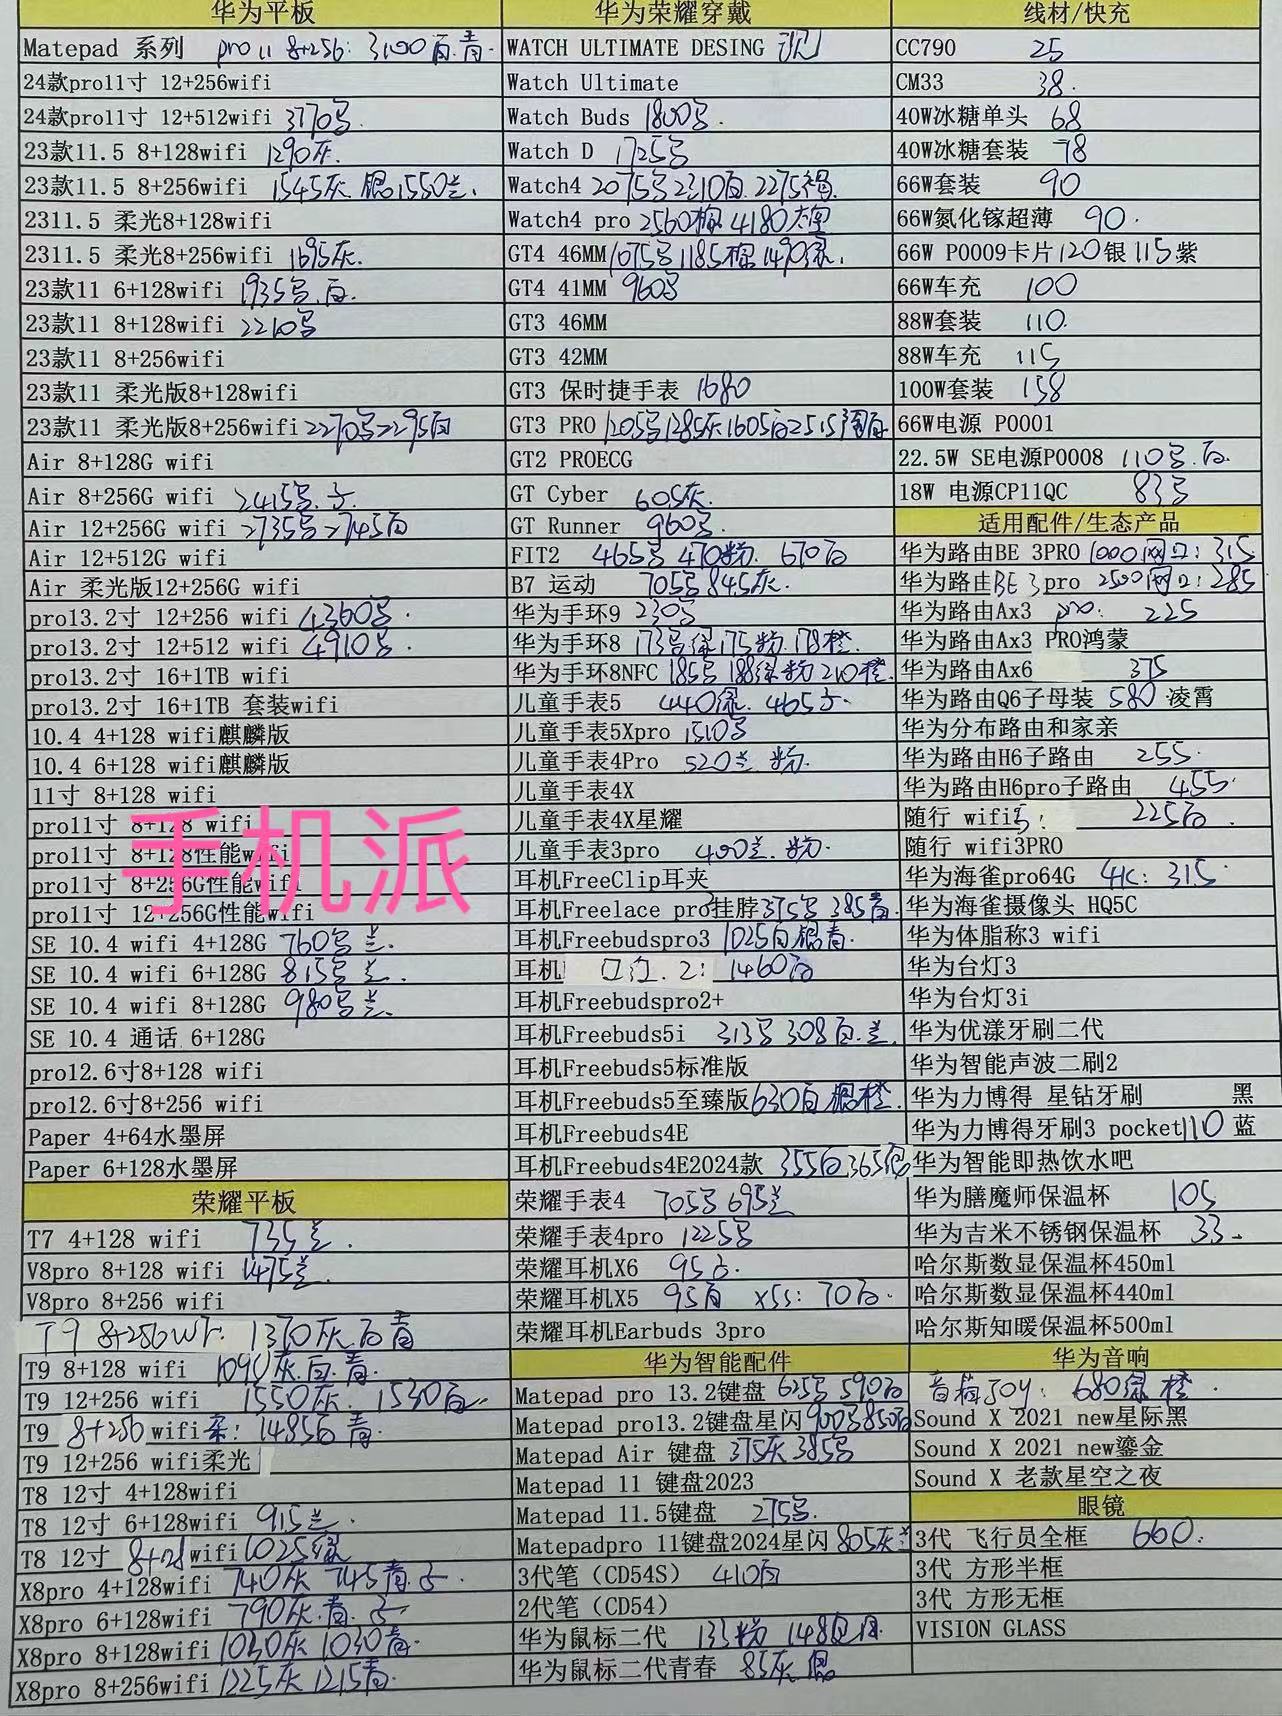 华为平板
Matepad 系列 pro 11 8+256: 3100 白.青.
24款pro11寸 12+256wifi
24款pro11寸 12+512wifi 3770
23款11.5 8+128wifi 1290灰.
23款11.5 8+256wifi 1545灰.银1550兰.
2311.5 柔光8+128wifi
2311.5 柔光8+256wifi 1695灰.
23款11 6+128wifi 1935 白.
23款11 8+128wifi 2210
23款11 8+256wifi
23款11 柔光版8+128wifi
23款11 柔光版8+256wifi 2270 2295白
Air 8+128G wifi
Air 8+256G wifi 2415
Air 12+256G wifi 2735 2745白
Air 12+512G wifi
Air 柔光版12+256G wifi
pro13.2寸 12+256 wifi 4360
pro13.2寸 12+512 wifi 4910
pro13.2寸 16+1TB wifi
pro13.2寸 16+1TB 套装wifi
10.4 4+128 wifi麒麟版
10.4 6+128 wifi麒麟版
11寸 8+128 wifi
pro11寸 8+128 wifi
pro11寸 8+128性能wifi
pro11寸 8+256G性能wifi
pro11寸 12+256G性能wifi
手机派
SE 10.4 wifi 4+128G 760 兰.
SE 10.4 wifi 6+128G 815 兰.
SE 10.4 wifi 8+128G 980 兰.
SE 10.4 通话 6+128G
pro12.6寸8+128 wifi
pro12.6寸8+256 wifi
Paper 4+64水墨屏
Paper 6+128水墨屏
荣耀平板
T7 4+128 wifi 735兰.
V8pro 8+128 wifi 1475兰.
V8pro 8+256 wifi
T9 8+256 1370灰 白 青
T9 8+128 wifi 灰.白.青.
T9 12+256 wifi 1550灰. 1530白.
T9 8+256 wifi柔: 1485白 青.
T9 12+256 wifi柔光
T8 12寸 4+128wifi
T8 12寸 6+128wifi 915兰.
T8 12寸 8+128 wifi 1025绿
X8pro 4+128wifi 740灰 745青.
X8pro 6+128wifi 790灰.青.
X8pro 8+128wifi 1030灰 1030青.
X8pro 8+256wifi 1225灰 1215青.
华为荣耀穿戴
WATCH ULTIMATE DESING
Watch Ultimate
Watch Buds 1800
Watch D 1725
Watch4 2075 2310白. 2275褐.
Watch4 pro 2560 4180
GT4 46MM 1075 1185棕 1490绿.
GT4 41MM 960
GT3 46MM
GT3 42MM
GT3 保时捷手表 1680
GT3 PRO 1205 1285灰 1605 2515陶白
GT2 PROECG
GT Cyber 605灰.
GT Runner 960
FIT2 465 470粉. 670白
B7 运动 705 845灰.
华为手环9 230
华为手环8 173 绿 175粉. 178橙.
华为手环8NFC 185 188绿 粉 210橙.
儿童手表5 440绿. 465
儿童手表5Xpro 1510
儿童手表4Pro 520兰 粉.
儿童手表4X
儿童手表4X星耀
儿童手表3pro 400兰. 粉.
耳机FreeClip耳夹
耳机Freelace pro挂脖375 385青.
耳机Freebudspro3 1025白银青.
耳机 2: 1460白
耳机Freebudspro2+
耳机Freebuds5i 313 308白.兰.
耳机Freebuds5标准版
耳机Freebuds5至臻版630白 银橙.
耳机Freebuds4E
耳机Freebuds4E2024款 355白 365
荣耀手表4 705 695兰
荣耀手表4pro 1225
荣耀耳机X6 95白.
荣耀耳机X5 95白 X5s: 70白.
荣耀耳机Earbuds 3pro
华为智能配件
Matepad pro 13.2键盘 625 590白
Matepad pro13.2键盘星闪 900 850白
Matepad Air 键盘 375灰 385
Matepad 11 键盘2023
Matepad 11.5键盘 275
Matepadpro 11键盘2024星闪 805灰兰
3代笔（CD54S） 410白
2代笔（CD54）
华为鼠标二代 133粉 148
华为鼠标二代青春 85灰 银
线材/快充
CC790 25
CM33 38.
40W冰糖单头 68
40W冰糖套装 78
66W套装 90
66W氮化镓超薄 90.
66W P0009卡片120银115紫
66W车充 100
88W套装 110.
88W车充 115
100W套装 158
66W电源 P0001
22.5W SE电源P0008 110 白.
18W 电源CP11QC 83
适用配件/生态产品
华为路由BE 3PRO 1000网口: 315
华为路由BE 3 pro 2500网口: 285
华为路由Ax3 pro: 225
华为路由Ax3 PRO鸿蒙
华为路由Ax6 375
华为路由Q6子母装 580 凌霄
华为分布路由和家亲
华为路由H6子路由 255.
华为路由H6pro子路由 455.
随行 wifi5: 225白.
随行 wifi3PRO
华为海雀pro64G 4K: 315.
华为海雀摄像头 HQ5C
华为体脂称3 wifi
华为台灯3
华为台灯3i
华为优漾牙刷二代
华为智能声波二刷2
华为力博得 星钻牙刷 黑
华为力博得牙刷3 pocket110 蓝
华为智能即热饮水吧
华为膳魔师保温杯 105
华为吉米不锈钢保温杯 33.
哈尔斯数显保温杯450ml
哈尔斯数显保温杯440ml
哈尔斯知暖保温杯500ml
华为音响
音箱JOY: 680绿 橙.
Sound X 2021 new星际黑
Sound X 2021 new鎏金
Sound X 老款星空之夜
眼镜
3代 飞行员全框 660.
3代 方形半框
3代 方形无框
VISION GLASS